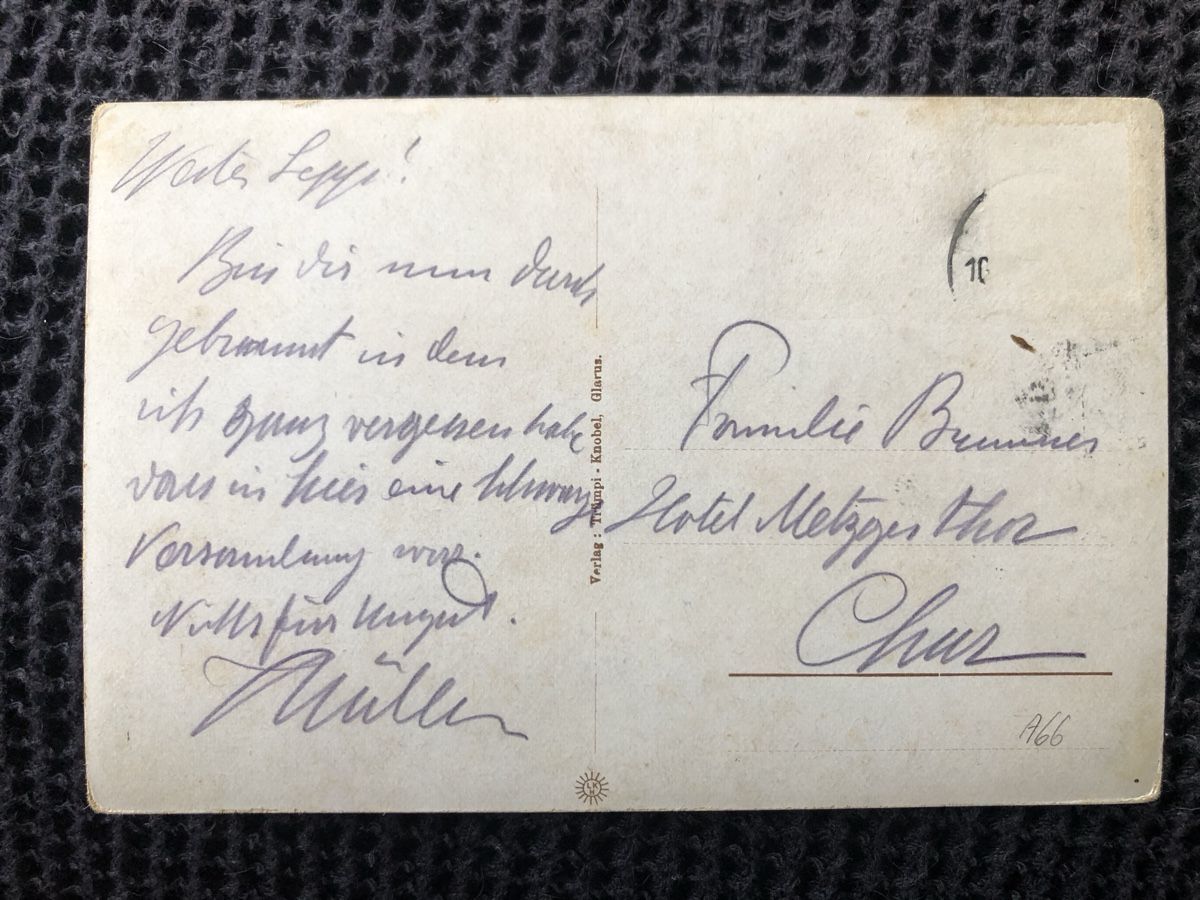 Werter Seppi!
Bin dir nun durch
gebrannt in dem
ich ganz vergessen habe
dass in hier eine Schwarz
Versamlung war.
Nichts für Ungut.
Müller
Verlag: Trümpi-Knobel, Glarus.
10
Familie Brunner
Hotel Metzgerthor
Chur
A66